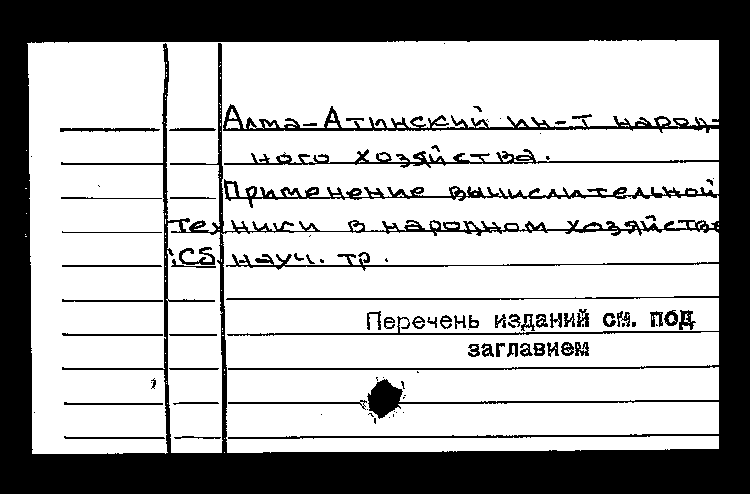 Алма-Атинский ин-т народ-
ного хозяйства.
Применение вычислительной
техники в народном хозяйстве
:Сб. науч. тр.
Перечень изданий см. под
заглавием